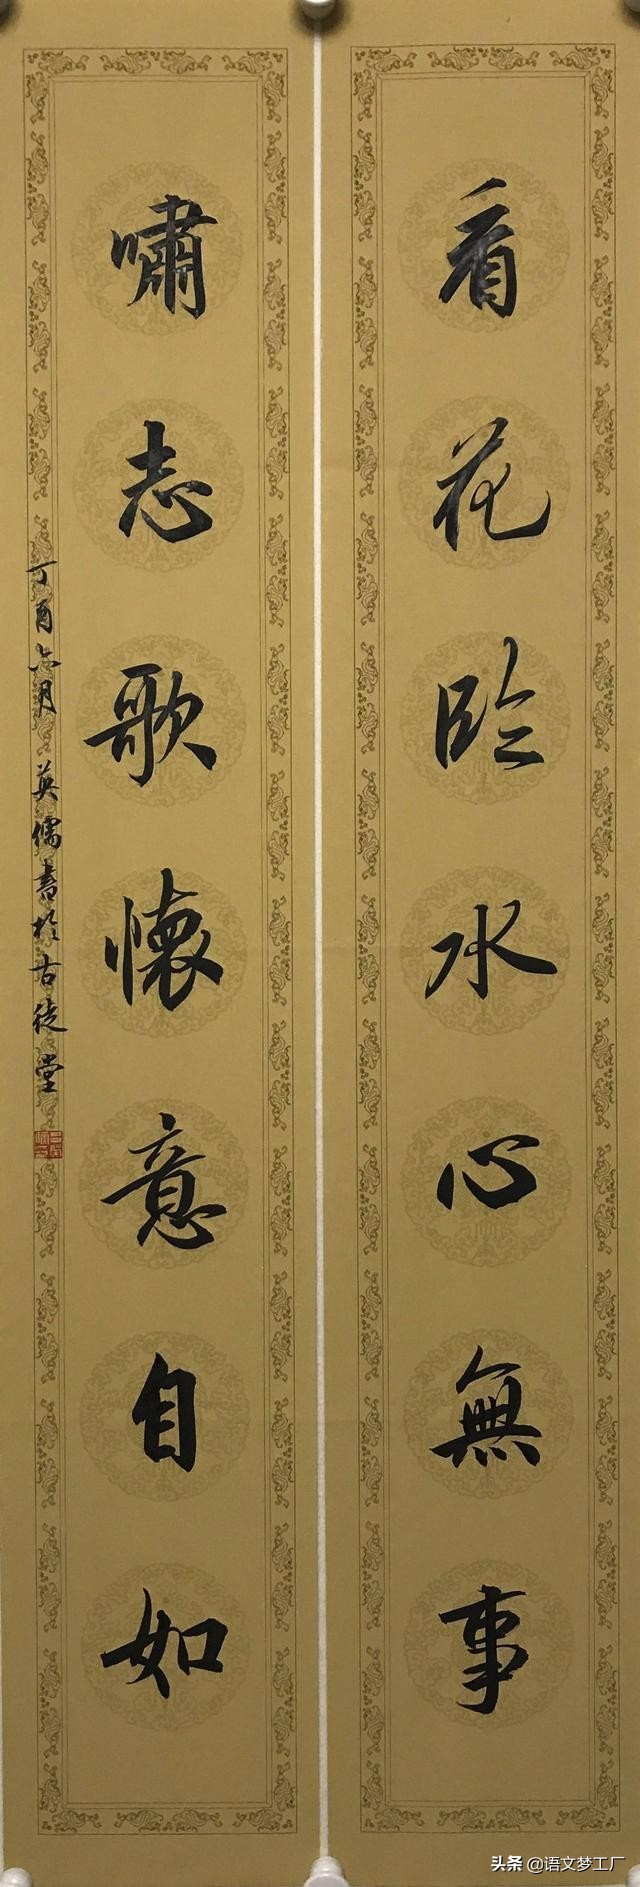 看花临水心無事
嘯志歌懷意自如
丁酉六月 英儒書於古徒堂
头条 @语文梦工厂